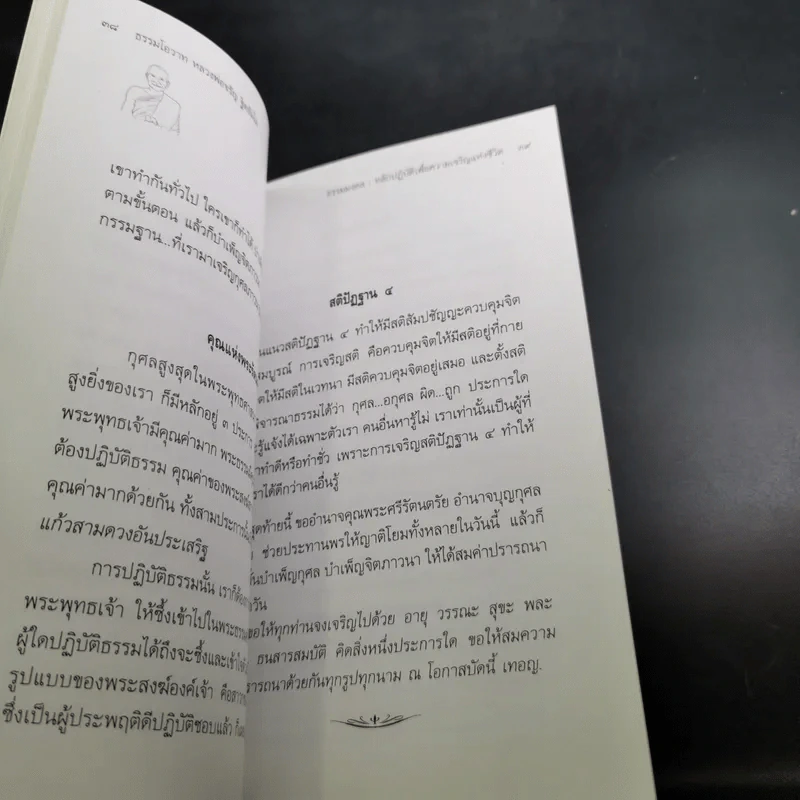 ๓๘ ธรรมโอวาท หลวงพ่อจรัญ
เขาทำกันทั่วไป ใครเขาก็ทำได้
ตามขั้นตอน แล้วก็บำเพ็ญจิต
กรรมฐาน...ที่เรามาเจริญกุศลภาวนา
คุณแห่งพระ
กุศลสูงสุดในพระพุทธศาส
สูงยิ่งของเรา ก็มีหลักอยู่ ๓ ประการ
พระพุทธเจ้ามีคุณค่ามาก พระธรรม
ต้องปฏิบัติธรรม คุณค่าของพระสงฆ์
คุณค่ามากด้วยกัน ทั้งสามประการนั้น
แก้วสามดวงอันประเสริฐ
การปฏิบัติธรรมนั้น เราก็ต้อง
พระพุทธเจ้า ให้ซึ้งเข้าไปในพระธรรม
ผู้ใดปฏิบัติธรรมได้ถึงจะซึ้งและเข้าใจ
รูปแบบของพระสงฆ์องค์เจ้า คือสาว
ซึ่งเป็นผู้ประพฤติดีปฏิบัติชอบแล้ว
ธรรมมงคล : หลักปฏิบัติเพื่อความเจริญแห่งชีวิต ๓๙
สติปัฏฐาน ๔
นแนวสติปัฏฐาน ๔ ทำให้มีสติสัมปชัญญะควบคุมจิต
มบูรณ์ การเจริญสติ คือควบคุมจิตให้มีสติอยู่ที่กาย
ตให้มีสติในเวทนา มีสติควบคุมจิตอยู่เสมอ และตั้งสติ
จารณาธรรมได้ว่า กุศล...อกุศล ผิด...ถูก ประการใด
รู้แจ้งได้เฉพาะตัวเรา คนอื่นหารู้ไม่ เราเท่านั้นเป็นผู้ที่
าทำดีหรือทำชั่ว เพราะการเจริญสติปัฏฐาน ๔ ทำให้
ราได้ดีกว่าคนอื่นรู้
สุดท้ายนี้ ขออำนาจคุณพระศรีรัตนตรัย อำนาจบุญกุศล
ช่วยประทานพรให้ญาติโยมทั้งหลายในวันนี้ แล้วก็
ันบำเพ็ญกุศล บำเพ็ญจิตภาวนา ให้ได้สมค่าปรารถนา
วัน
ขอให้ทุกท่านจงเจริญไปด้วย อายุ วรรณะ สุขะ พละ
ธนสารสมบัติ คิดสิ่งหนึ่งประการใด ขอให้สมความ
ารถนาด้วยกันทุกรูปทุกนาม ณ โอกาสบัดนี้ เทอญ.